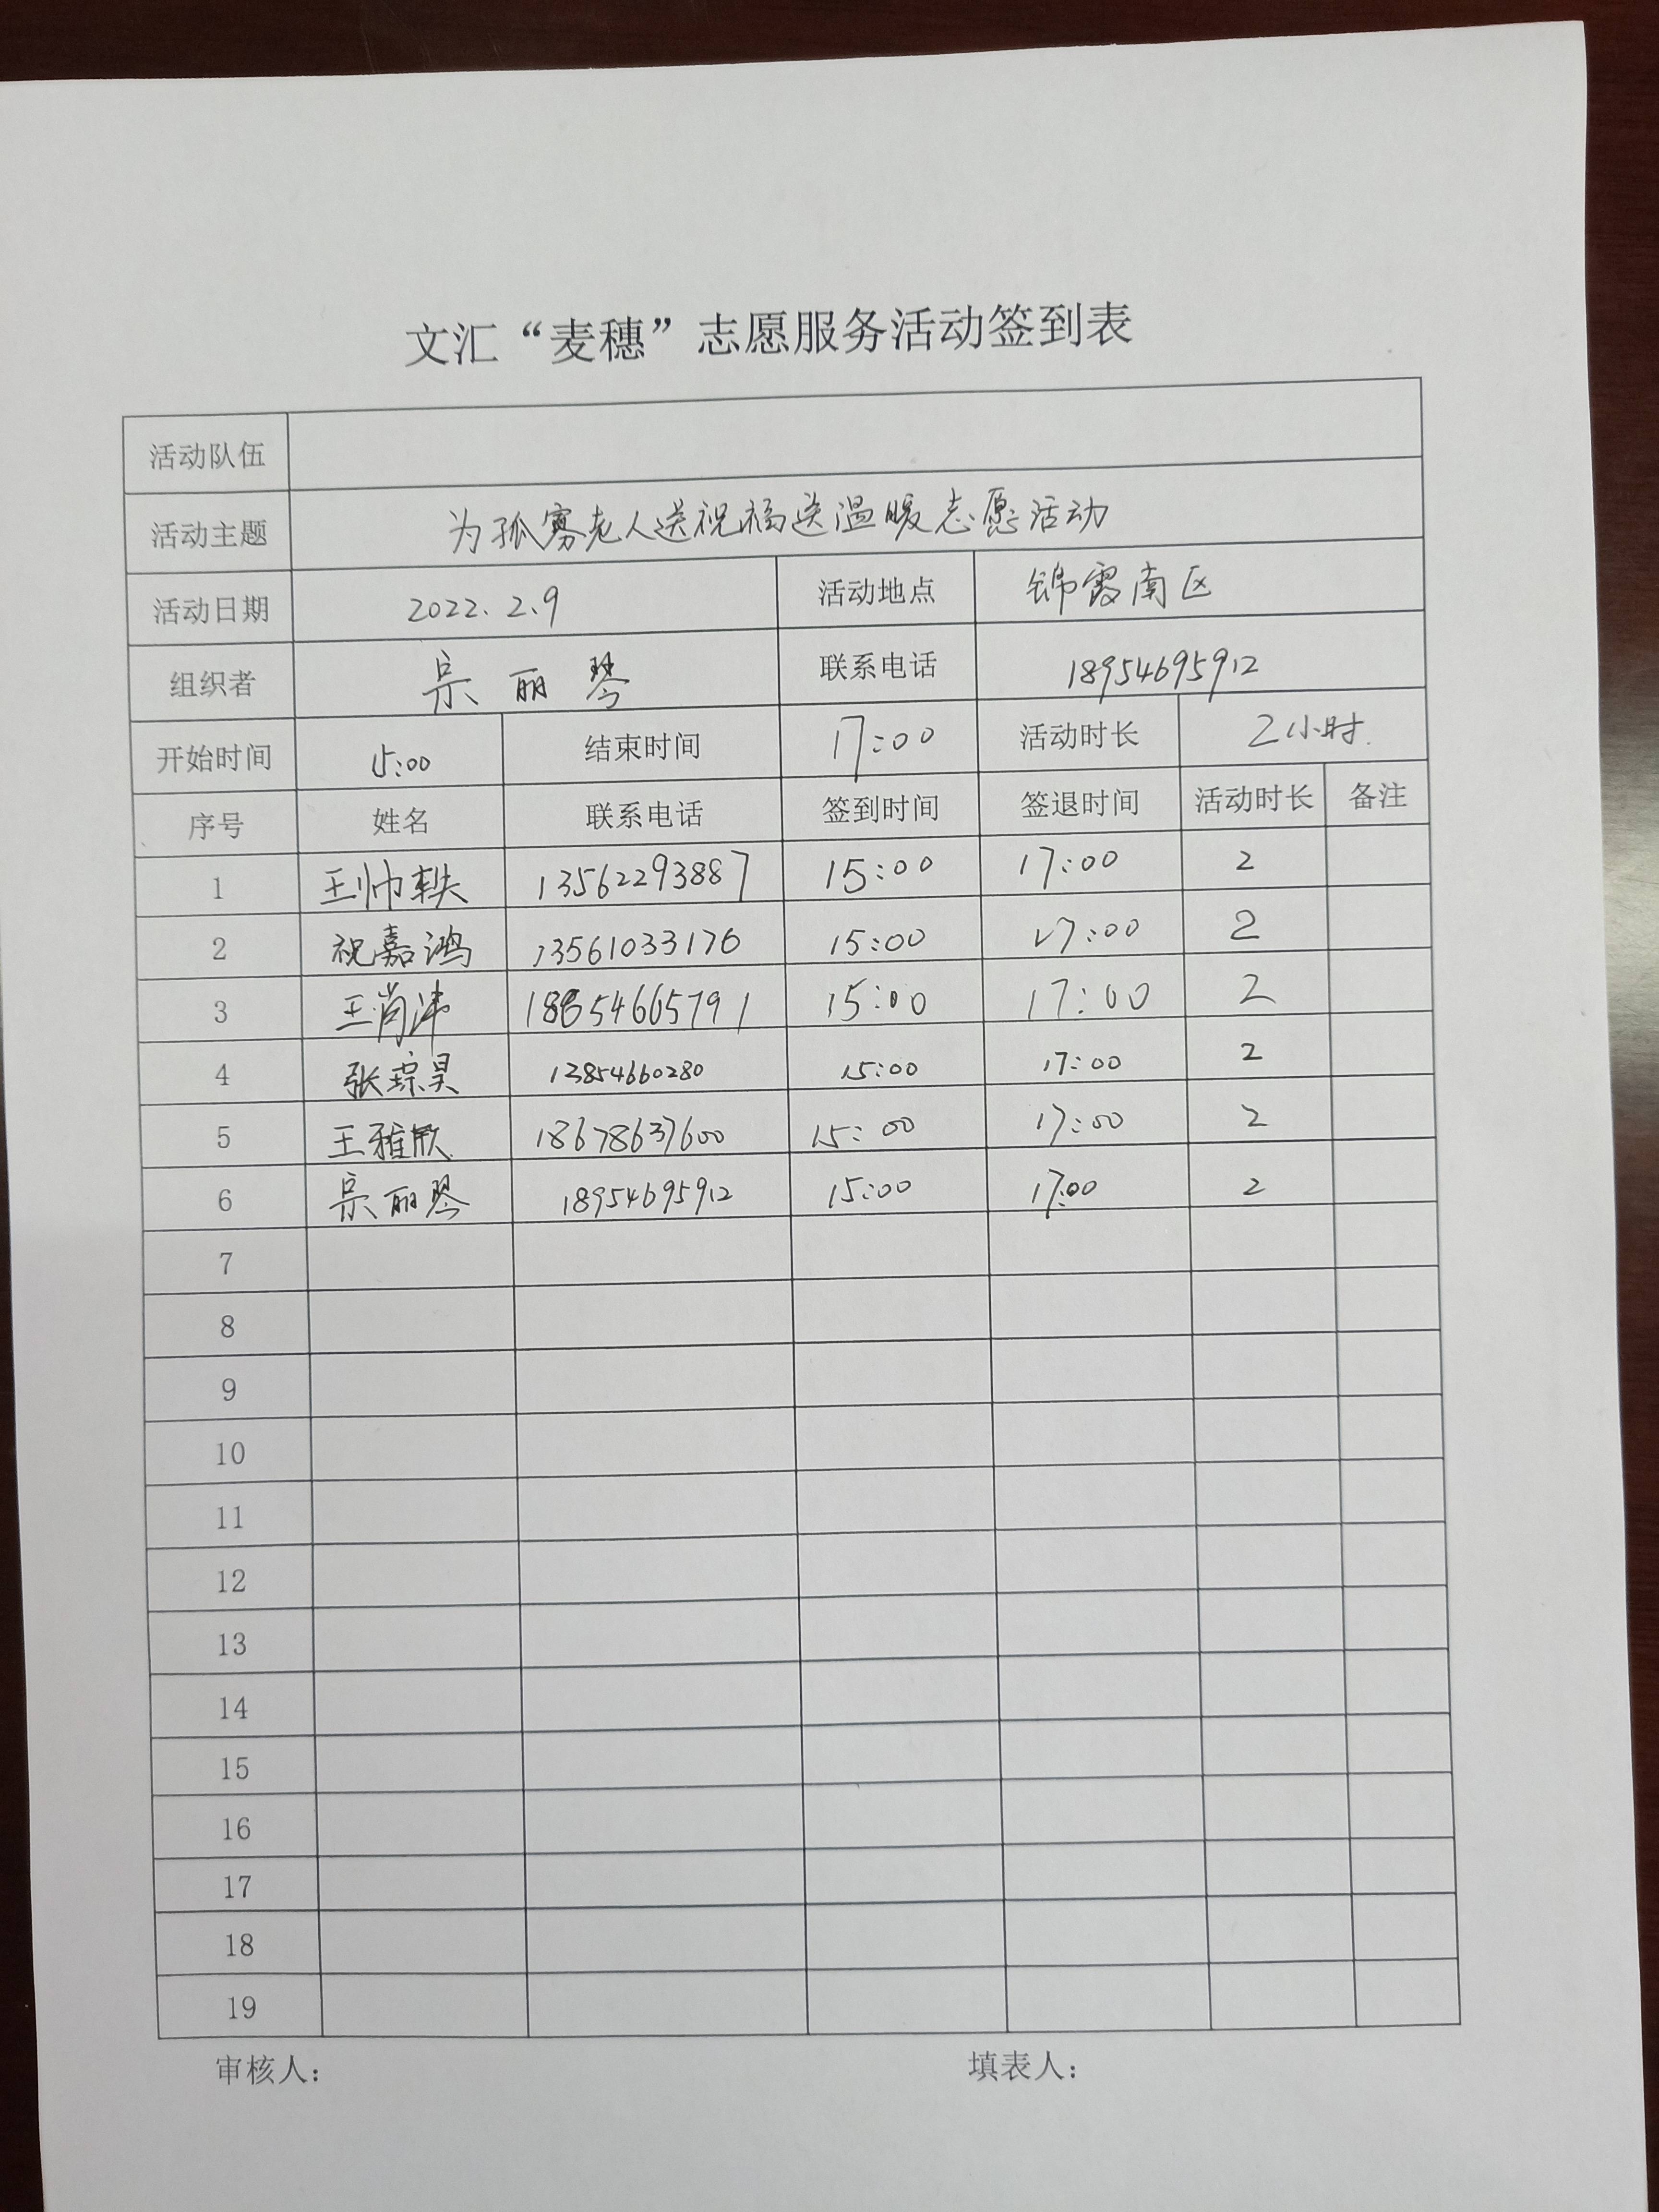 文汇“麦穗”志愿服务活动签到表
活动队伍
活动主题 为孤寡老人送祝福送温暖志愿活动
活动日期 2022.2.9 活动地点 锦霞南区
组织者 吴丽琴 联系电话 18954695912
开始时间 15:00 结束时间 17:00 活动时长 2小时
序号 姓名 联系电话 签到时间 签退时间 活动时长 备注
1 王帅轶 13562293887 15:00 17:00 2
2 祝嘉鸿 13561033176 15:00 17:00 2
3 王尚沣 18854665791 15:00 17:00 2
4 张琮昊 13854660280 15:00 17:00 2
5 王雅欣 18678637600 15:00 17:00 2
6 吴丽琴 18954695912 15:00 17:00 2
7
8
9
10
11
12
13
14
15
16
17
18
19
审核人： 填表人：